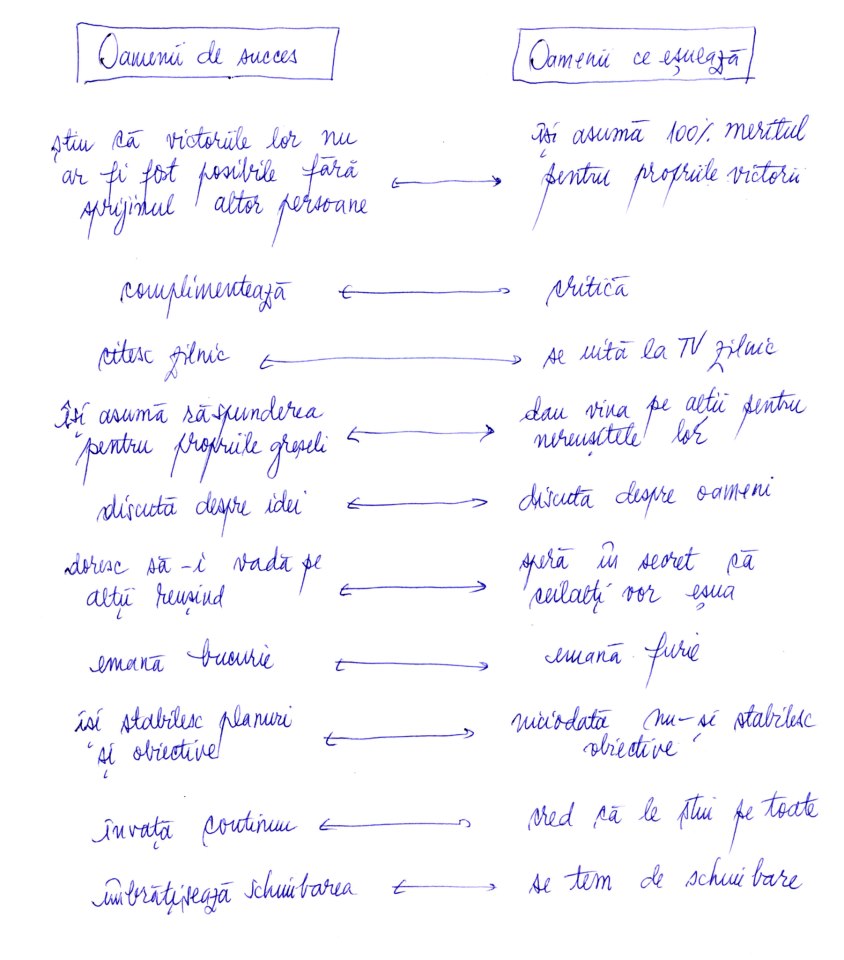 Oamenii de succes
Oamenii ce eșuează
știu că victoriile lor nu
ar fi fost posibile fără
sprijinul altor persoane
își asumă 100% meritul
pentru propriile victorii
complimentează
critică
citesc zilnic
se uită la TV zilnic
își asumă răspunderea
pentru propriile greșeli
dau vina pe alții pentru
nereușitele lor
discută despre idei
discută despre oameni
doresc să-i vadă pe
alții reușind
speră în secret că
ceilalți vor eșua
emană bucurie
emană furie
își stabilesc planuri
și obiective
niciodată nu-și stabilesc
obiective
învață continuu
cred că le știu pe toate
îmbrățișează schimbarea
se tem de schimbare